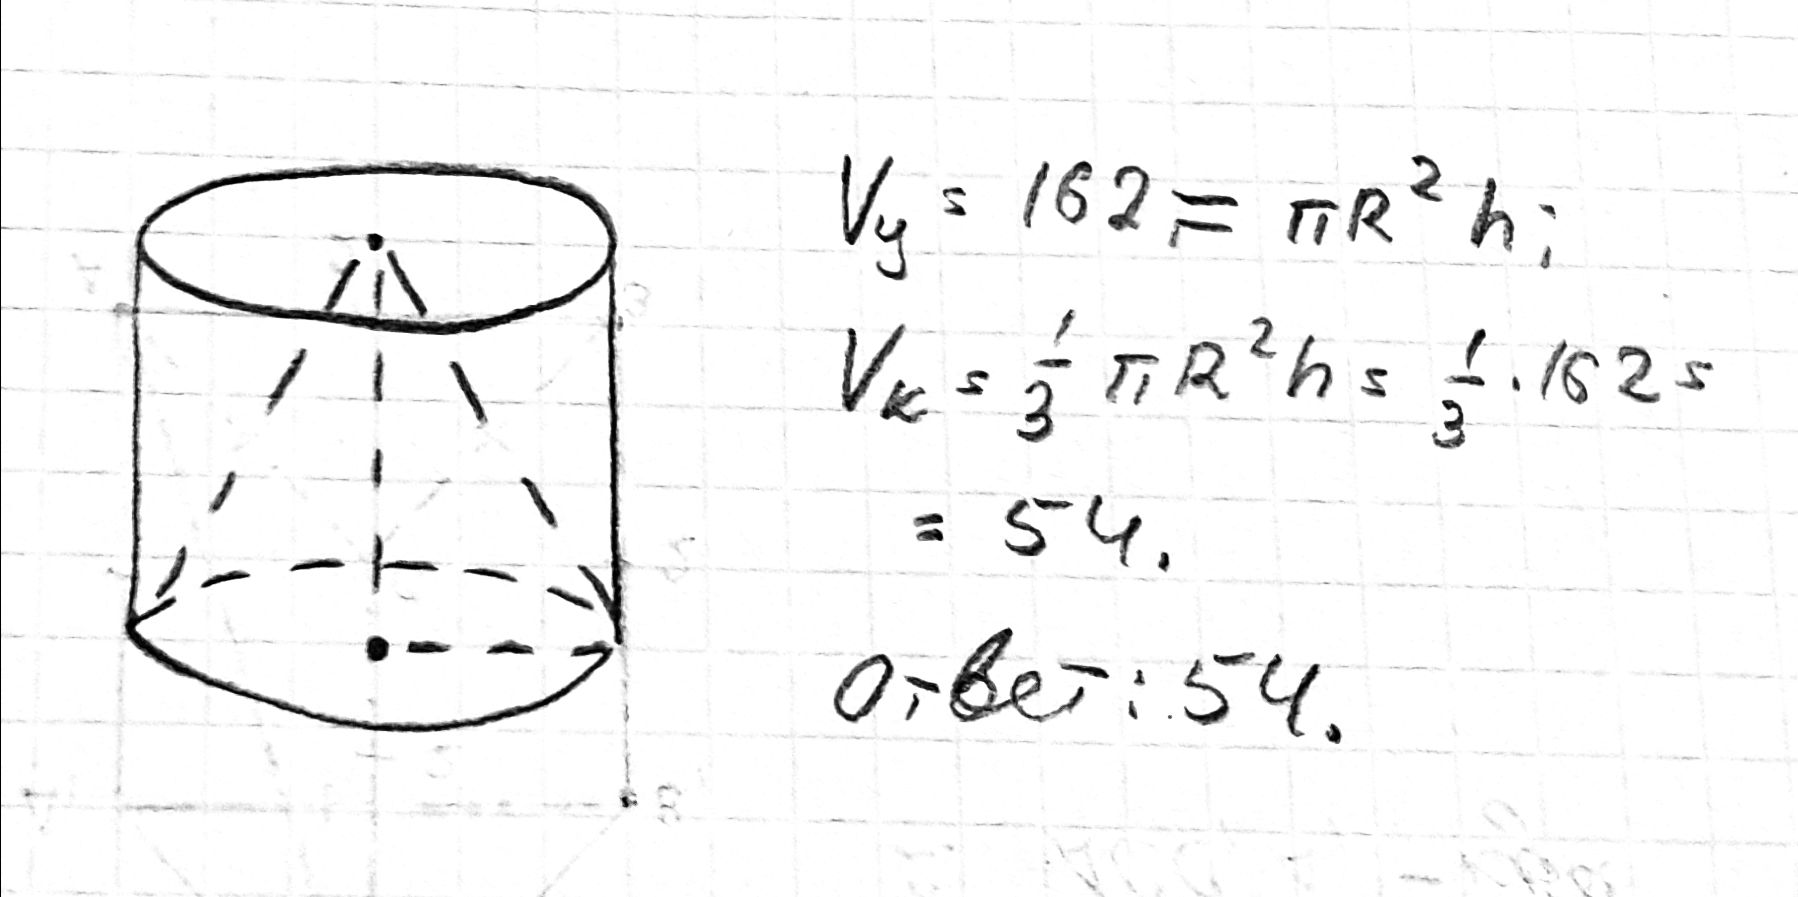 Vц = 162 = πR²h;
Vк = 1/3 πR²h = 1/3 · 162 =
= 54.
Ответ: 54.